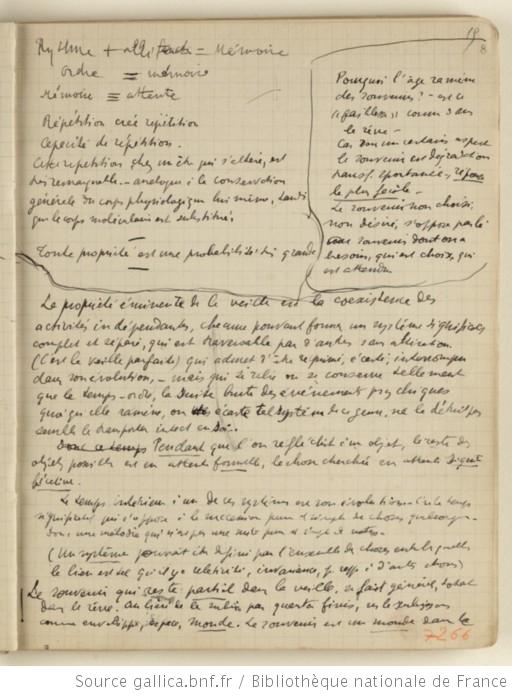 19
8
Rythme + = Mémoire
ordre ≡ mémoire
Mémoire ≡ attente
Répétition crée répétition
Capacité de répétition.
Cette répétition chez un être qui s'altère, est
très remarquable — analogue à la conservation
générale du corps physiologique lui même, tandis
que le corps moléculaire est substitué.
Toute propriété est une probabilité très grande
Pourquoi l'âge ramène
des souvenirs? — est ce
"faiblesse" comme dans
le rêve —
Car sous un certain aspect
le souvenir est dégradation
transf. spontanée, réponse
la plus facile —
Le souvenir non choisi,
non désiré, s'oppose par là
au souvenir dont on a
besoin, qui est choisi, qui
est attendu.
La propriété éminente de la veille est la coexistence des
activités indépendantes, chacune pouvant former un système significatif
complet et séparé, qui est traversable par d'autres sans altération.
(C'est la veille parfaite) qui admet d'être réprimé, écarté, interrompu
dans son évolution, — mais qui se conserve tellement
que le temps-ordre, la suite brute des événements psychiques
quoiqu'elle ramène, ou écarte tel système de ce genre, ne le détruit pas
semble le transporter intact en soi.
Pendant que l'on réfléchit à un objet, le reste des
objets possibles est en attente formelle, la chose cherchée en attente
Le temps intérieur à un de ces systèmes est son évolution. C'est le temps
significatif qui s'oppose à la succession pure et simple de choses quelconques —
donc une mélodie qui n'est pas une suite pure et simple de notes.
(Un système pourrait être défini par l'ensemble de choses entre lesquelles
le lien est tel qu'il y a relativité, invariance, et d'autres choses)
Le souvenir qui reste partiel dans la veille, se fait général, total
dans le rêve. Au lieu de le subir par quanta finis, on le subit
comme enveloppe, espace, monde. Le souvenir est un monde dans le
7266
Source gallica.bnf.fr / Bibliothèque nationale de France